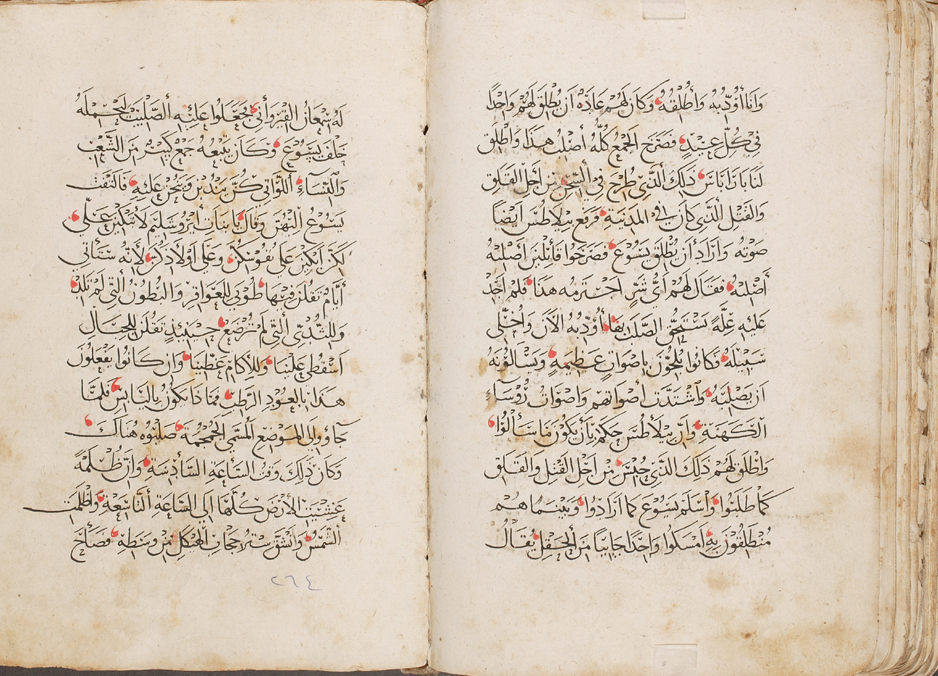 وانا أودبه وأطلقه وكان لهم عاده ان يطلق لهم واحدا
في كل عيد فصرخ الجمع كله أصلب هذا واطلق
لنا باراباس ذلك الذي طرح في السجن من اجل القلق
والقتل الذي كان في المدينة ورفع بيلاطس ايضا
صوته وأراد أن يطلق يسوع فصرخوا قايلين أصلبه
أصلبه فقال لهم أي شر اجترمه هذا فلم اجد
عليه علة يستحق الصلب بها أودبه الآن وأخلي
سبيله وكانوا يلحون باصوات عظيمة ويسالونه
ان يصلبه واشتدت أصواتهم واصوات روساء
الكهنة وان بيلاطس حكم بأن يكون ما سألوا
واطلق لهم ذلك الذي حبس من اجل القتل والقلق
كما طلبوا وأسلم يسوع كما ارادوا وبينما هم
منطلقون به امسكوا واحدا جاييا من الحقل يقال
له سمعان القيرواني فجعلوا عليه الصليب ليحمله
خلف يسوع وكان يتبعه جمع كثير من الشعب
والنساء اللواتي كن يندبن وينحن عليه فالتفت
يسوع اليهن وقال يا بنات أيروشليم لا تبكين علي
لكن ابكين على نفوسكن وعلى اولادكن لأنه ستاتي
أيام تقلن فيها طوبى للعواقر والبطون التي لم تلد
وللثدي التي لم ترضع حينيذ تقلن للجبال
اسقطي علينا وللاكام غطينا وان كانوا يفعلون
هذا بالعود الرطب فماذا يكون باليابس فلما
جاؤ الى الموضع المسمى الجمجمة صلبوه هناك
وكان ذلك وقت الساعة السادسة وان ظلمة
غشيت الأرض كلها الى الساعة التاسعة واظلمت
الشمس وانشق ستر حجاب الهيكل من وسطه فصاح
٢٦٤